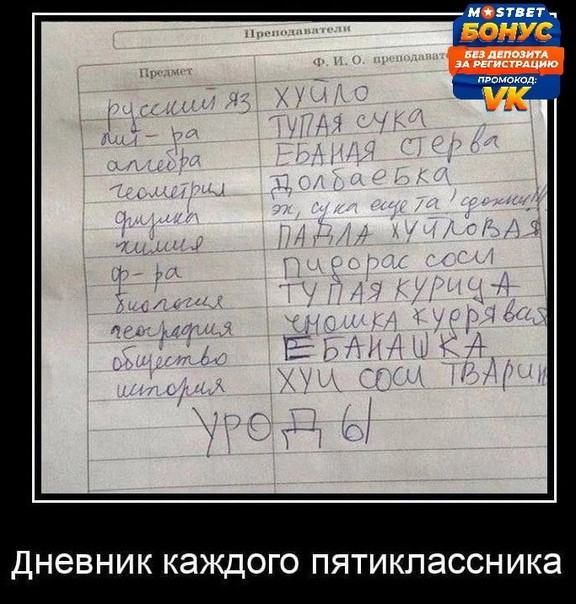 Преподаватели
MOSTBET
БОНУС
БЕЗ ДЕПОЗИТА
ЗА РЕГИСТРАЦИЮ
ПРОМОКОД:
VK
Предмет Ф. И. О. преподават
русский яз ХУЙЛО
лит-ра ТУПАЯ сука
алгебра ЕБАНАЯ стерва
геометрия Долбаебка
физика эх, сука еще та! сдохни!!!
химия ПАДЛА ХУЙЛОВАЯ
ф-ра Пидорас соси
биология ТУПАЯ КУРИЦА
география чмошка кудрявая
общество ЕБАНАШКА
история ХУЙ соси ТВАРИ
УРОДЫ
Дневник каждого пятиклассника